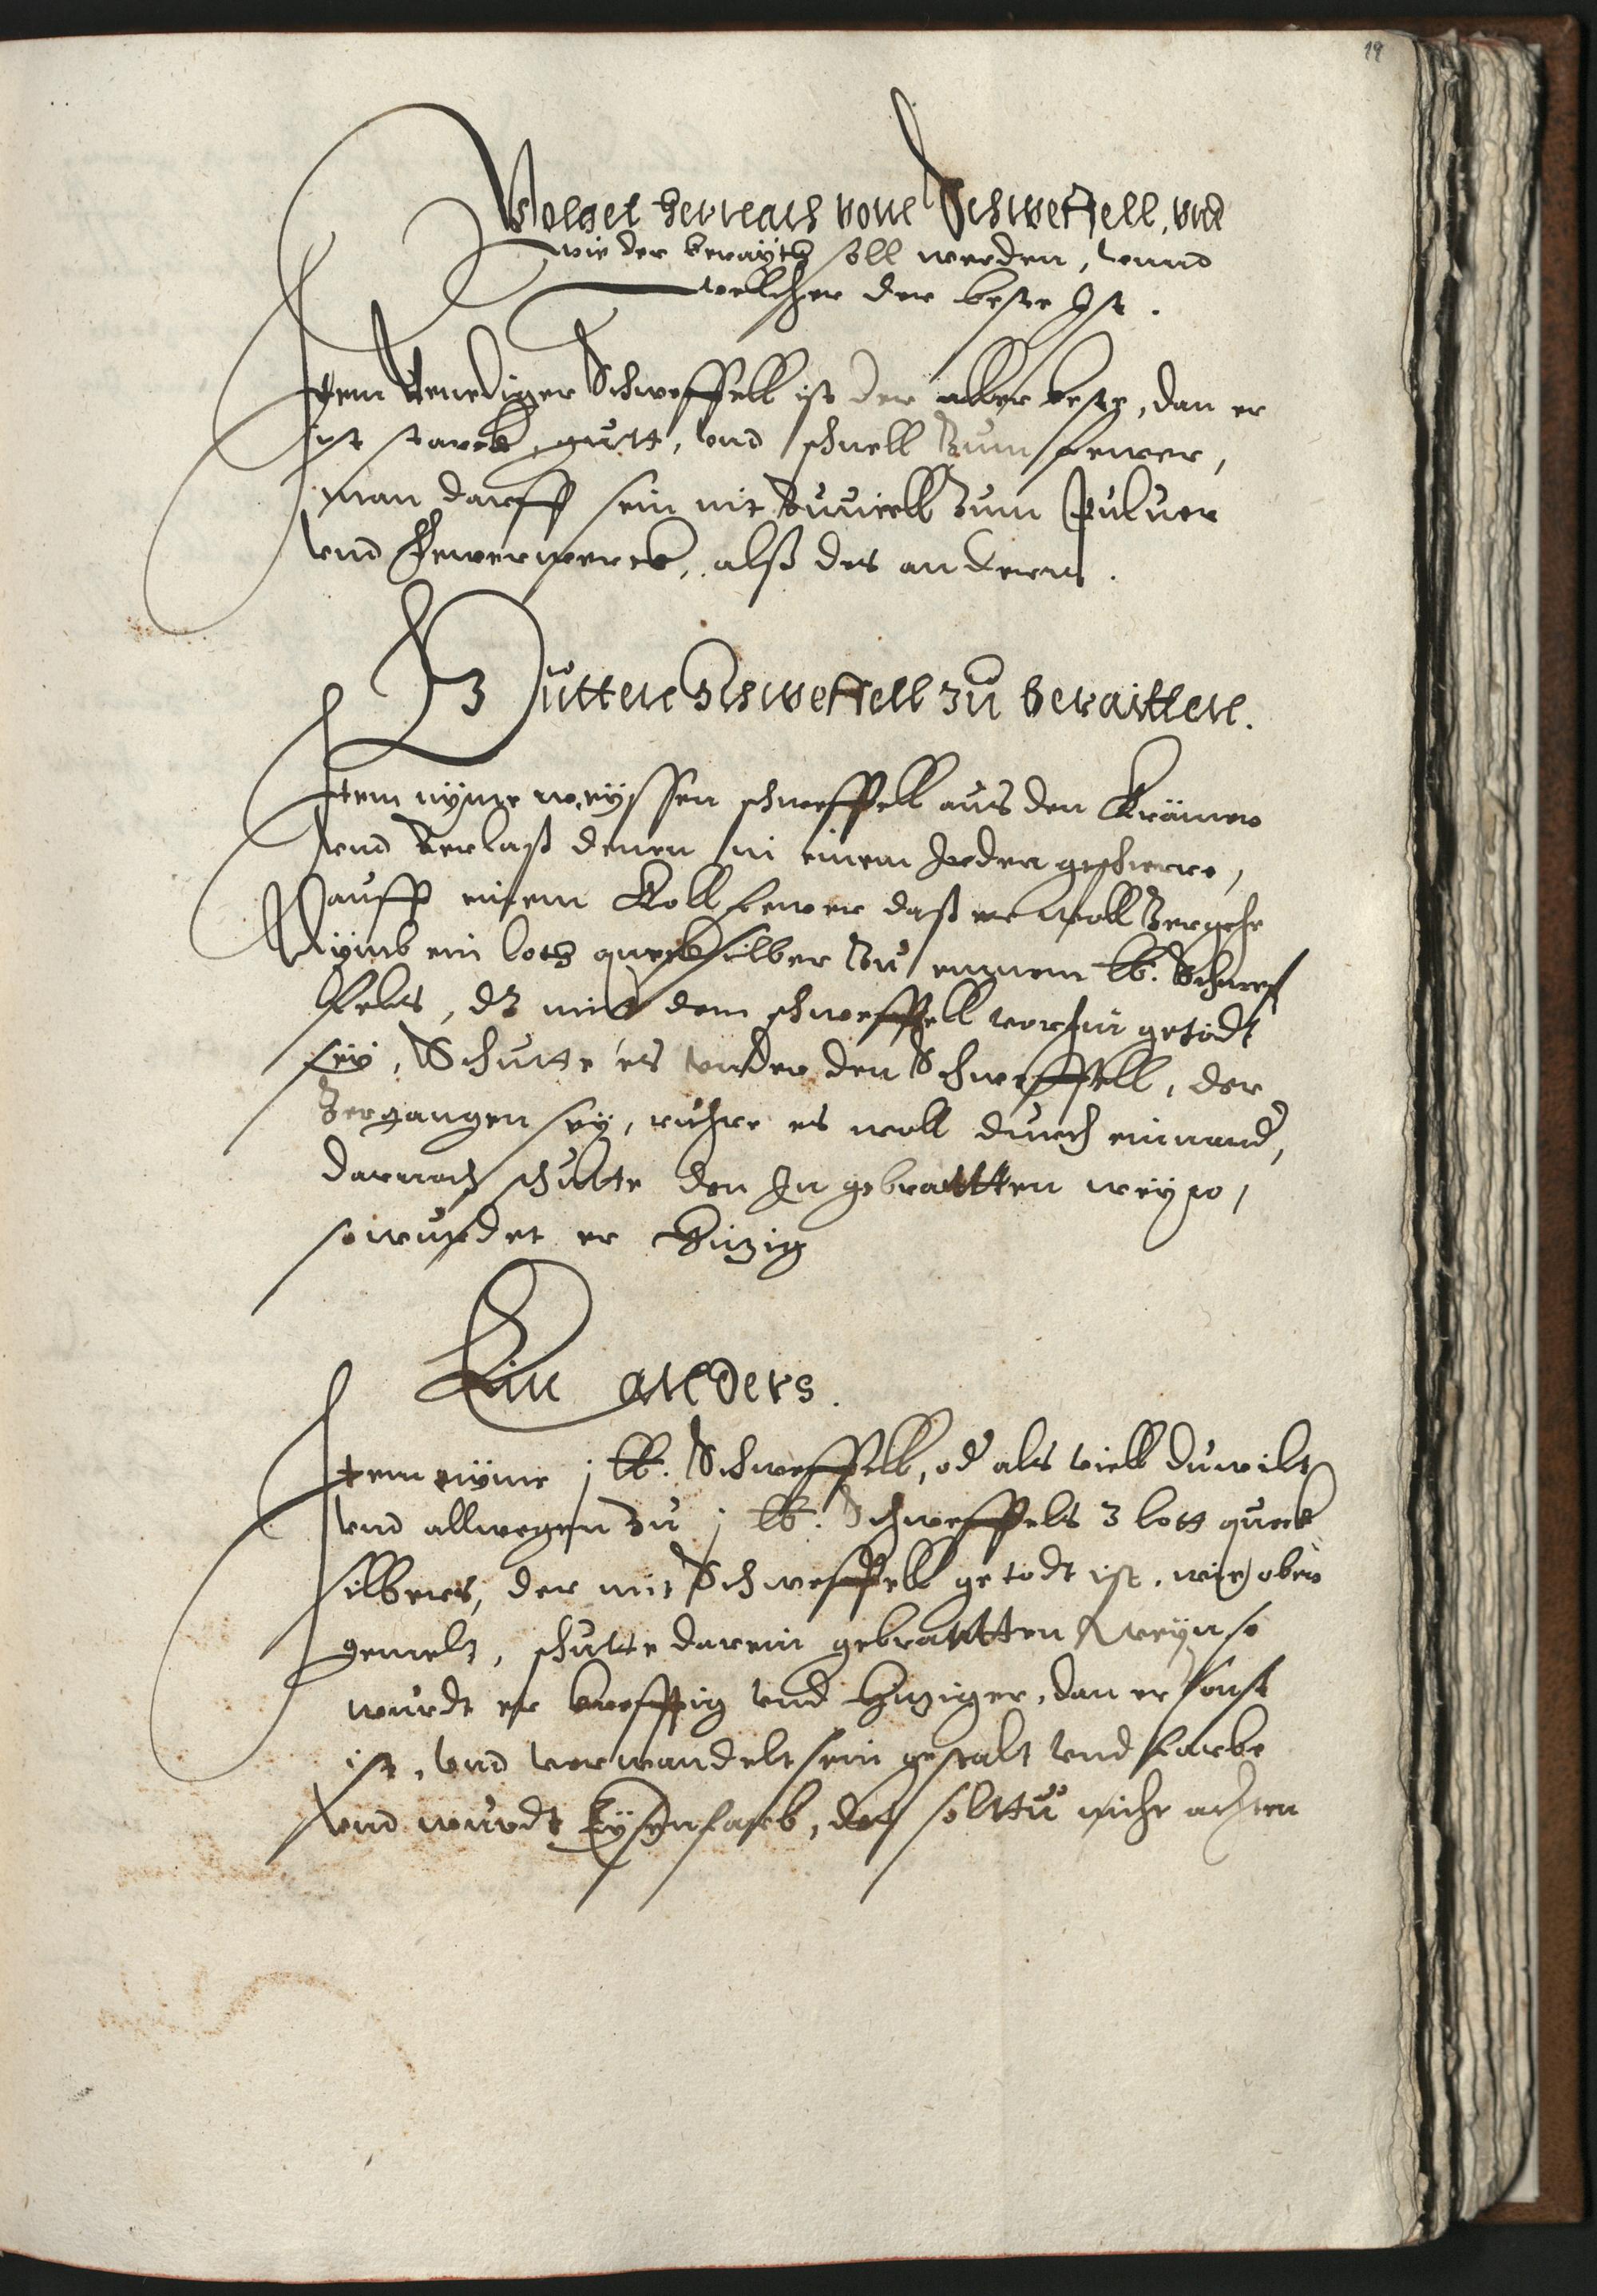 19
Volget hernach vonn Schweffell, vnd
wie der beraytt soll werden, vnnd
welcher der beste Ist.
Item Venediger Schweffell ist der aller beste, dan er
ist starck, gutt, vnd schnell Zum fewer,
man darff sein nit Zuuiell Zum Puluer
vnd Fewerwerck, alß des andern.
Gutten Schweffell zu beraitten.
Item nyme weyssen schweffell aus den Krämen
vnd Zerlaß denen in einem Irden geschirre,
auff einem Koll fewer daß er woll Zergehe
Nymb ein loth quecksilber Zu einnem lb. Schweff
fels, dz mitt dem schweffell vorhin getödt
sey, Schutte es vnder den Schweffell, der
Zergangen sey, ruhre es woll durch einnand,
darnach schutte den In gebrantten weyn,
so wurdet er Hitzig
Ein anders.
Item nyme j lb. Schweffell, od als viell du wilt
vnd allwegen zu j lb. Schweffels 3 lott queck
silbers, der mit Schweffell getodt ist, wie oben
gemelt, schutte darein gebrantten weyn so
wurdt er kreffftig vnd Hitziger, dan er sonst
ist, vnd verwandelt sein gestalt vnd farbe
vnd wurdt Eysenfarb, des solttu nicht achten